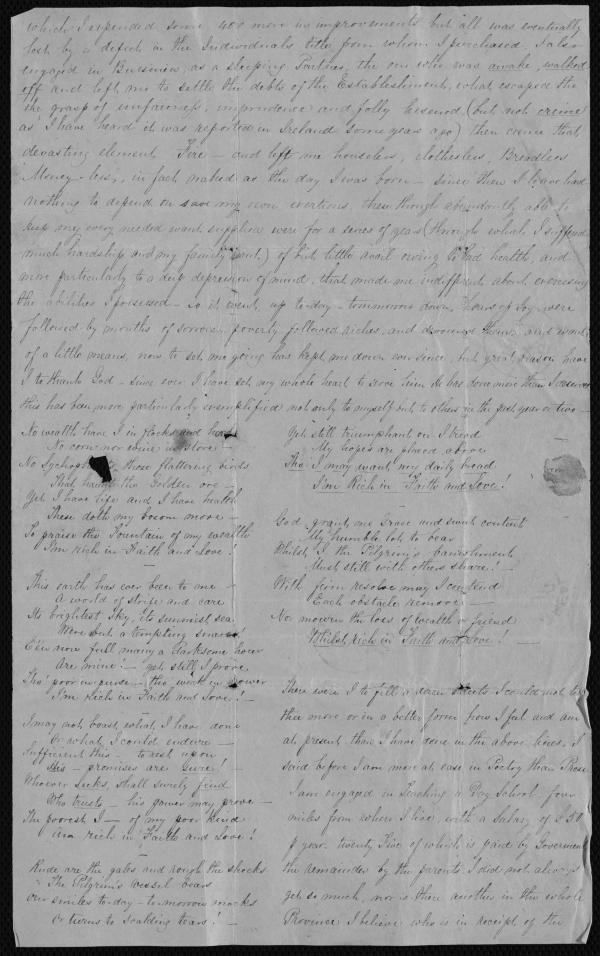 which I expended some 400 more in improvements but all was eventually
lost by a defect in the Individuals title from whom I purchased, I also
engaged in Business, as a sleeping Partner, the one who was awake, walked
off and left me to settle the debts of the Establishment, what escaped the
the grasp of unfairness, imprudence and folly (but not crime
as I have heard it was reported in Ireland some years ago) then came that
devasting element Fire — and left me houseless, clotheless, Breadless
Money-less, in fact naked as the day I was born — since then I have had
nothing to depend on save my own exertions, these though abundantly able to
keep my every needed want supplied were for a series of years (through which I suffered
much hardship and my family want,) of but little avail owing to bad health, and
more particularly to a deep depression of mind, that made me indifferent about exercising
the abilities I possessed — so it went, up to-day — tommorrow down, hours of Joy were
followed by months of sorrow, poverty followed riches, and devoured them, and want
of a little means, now to set me going has kept me down ever since, but great reason have
I to thank God — since ever I have set my whole heart to serve him he has done more than I deserve
this has been more particularly exemplified not only to myself but to others in the past year or two —
No wealth have I in flocks and herds
No corn nor wine in store —
No Sycophants, those flattering birds
That haunt the Golden ore —
Yet I have life and I have health
These doth my bosom move —
To praise the Fountain of my wealth
I'm rich in Faith and Love!
—
This earth has ever been to me —
A world of strife and care
Its brightest sky, its sunniest sea
Were but a tempting snare!
E'en now full many a darksome hour
Are mine! — yet still I prove
Tho' poor in purse — tho' weak in power
I'm Rich in Faith and Love! —
—
I may not boast what I have done
Or what I could endure —
Sufficient this — to rest upon
His — promises are Sure! —
Whoever seeks, shall surely find
Who trusts — his power may prove —
The poorest I — of my poor kind
Am rich in Faith and Love!
—
Rude are the gales and rough the shocks
The Pilgrim's Vessel bears
Our smiles to-day — to-morrow mocks
Or turns to scalding tears! —
Yet still triumphant on I tread
My hopes are placed above
Tho' I may want my daily bread
I'm Rich in Faith and Love!
—
God grant me Grace and sweet content
My humble lot to bear
Whilst I the Pilgrim's banishment
Must still with others share! —
With firm resolve may I contend
Each obstacle remove —
No more the loss of wealth or friend
Whilst rich in Faith and Love! —
There were I to fill a dozen sheets I could not tell
thee more or in a better form how I feel and am
at present than I have done in the above lines. I
said before I am more at ease in Poetry than Prose
I am engaged in Teaching a Day School four
miles from where I live, with a Salary of £50
p year, twenty Five of which is paid by Goverment
the remainder by the parents I did not always
get so much, nor is there another in the whole
Province I believe who is in receipt of the